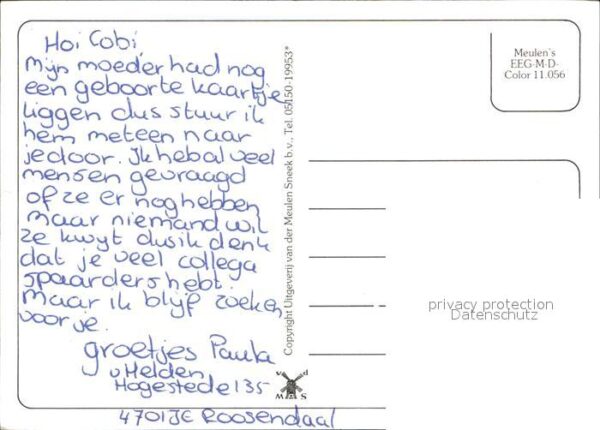 Hoi Cobi,
Mijn moeder had nog
een geboorte kaartje
liggen dus stuur ik
hem meteen naar
je door. Ik heb al veel
mensen gevraagd
of ze er nog hebben
maar niemand wil
ze kwyt dus ik denk
dat je veel collega
spaarders hebt.
Maar ik blijf zoeken
voor je.
groetjes Paula
v Helden
Hogestede 135
4701JE Roosendaal
Copyright Uitgeverij van der Meulen Sneek b.v., Tel. 05150-19953*
v d P
S M
Meulen's
EEG-M-D-
Color 11.056
privacy protection
Datenschutz